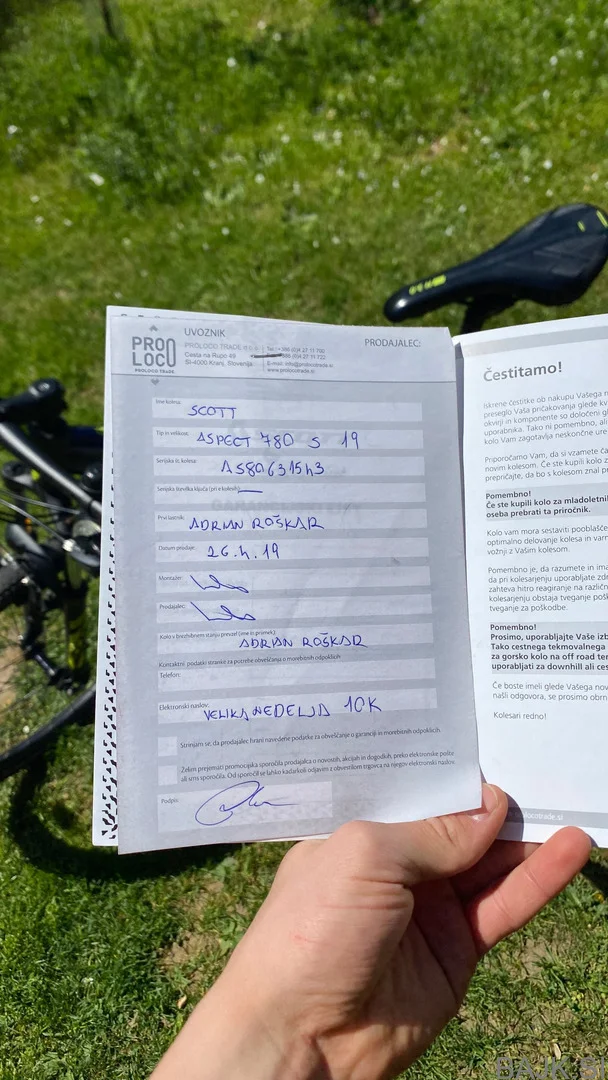 PROLOCO
PROLOCO TRADE
UVOZNIK
PROLOCO TRADE
Cesta na Rupo 49
SI-4000 Kranj, Slovenija
E-mail: info@prolocotrade.si
www.prolocotrade.si
PRODAJALEC:
Ime kolesa:
SCOTT
Tip in velikost:
ASPECT 780 S 19
Serijska št. kolesa:
AS80631543
Serijska številka ključa (pri e kolesih):
Prvi lastnik:
ADRIAN ROŠKAR
Datum prodaje:
26.4.19
Montažer:
Prodajalec:
Kolo v brezhibnem stanju prevzel (ime in priimek):
ADRIAN ROŠKAR
Kontaktni podatki stranke za potrebe obveščanja o morebitnih odpoklicih
Telefon:
Elektronski naslov:
VELIKA NEDELJA 10K
Strinjam se, da prodajalec hrani navedene podatke za obveščanje o garanciji in morebitnih odpoklicih.
Želim prejemati promocijska sporočila prodajalca o novostih, akcijah in dogodkih, preko elektronske pošte
ali sms sporočila. Od sporočil se lahko kadarkoli odjavim z obvestilom trgovca na njegov elektronski naslov.
Podpis:
Čestitamo!
Iskrene čestitke ob nakupu Vašega
preseglo Vaša pričakovanja glede
okvirji in komponente so določeni
uporabnika. Tako ni pomembno, ali
kolo Vam zagotavlja neskončne
Priporočamo Vam, da si vzamete
novim kolesom. Če ste kupili kolo
prepričajte, da bo s kolesom znal
Pomembno!
Če ste kupili kolo za
oseba prebrati ta priročnik.
Kolo vam mora sestaviti
optimalno delovanje kolesa in
vožnji z Vašim kolesom.
Pomembno je, da razumete in
da pri kolesarjenju uporabljate
zahteva hitro reagiranje na
kolesarjenju obstaja tveganje
tveganje za poškodbe.
Pomembno!
Prosimo, uporabljajte Vaše
Tako cestnega tekmovalnega
za gorsko kolo na off road
uporabljati za downhill ali
Če boste imeli glede Vašega
našli odgovora, se prosimo
Kolesari redno!
BAJK.SI